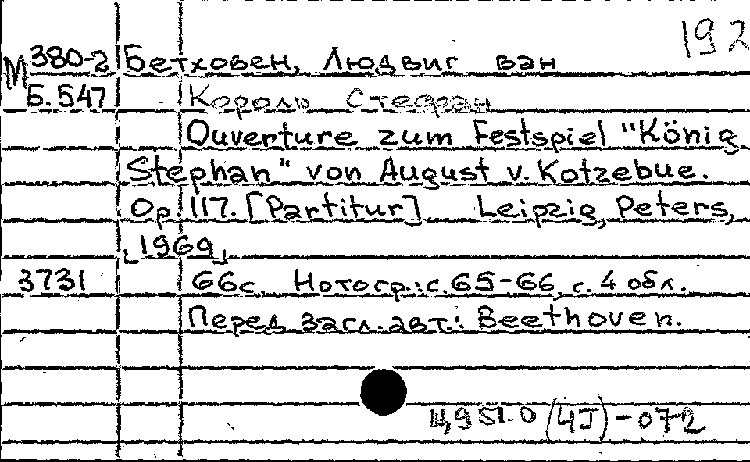 192
М 380-2 Бетховен, Людвиг ван
Б.547 Король Стефан
Ouverture zum Festspiel "König
Stephan" von August v. Kotzebue.
Op. 117. [Partitur] Leipzig, Peters,
[1969]
3731 66с. Нотогр.: с. 65-66, с. 4 обл.
Перед загл. авт.: Beethoven.
Щ951.0(4Г)-072